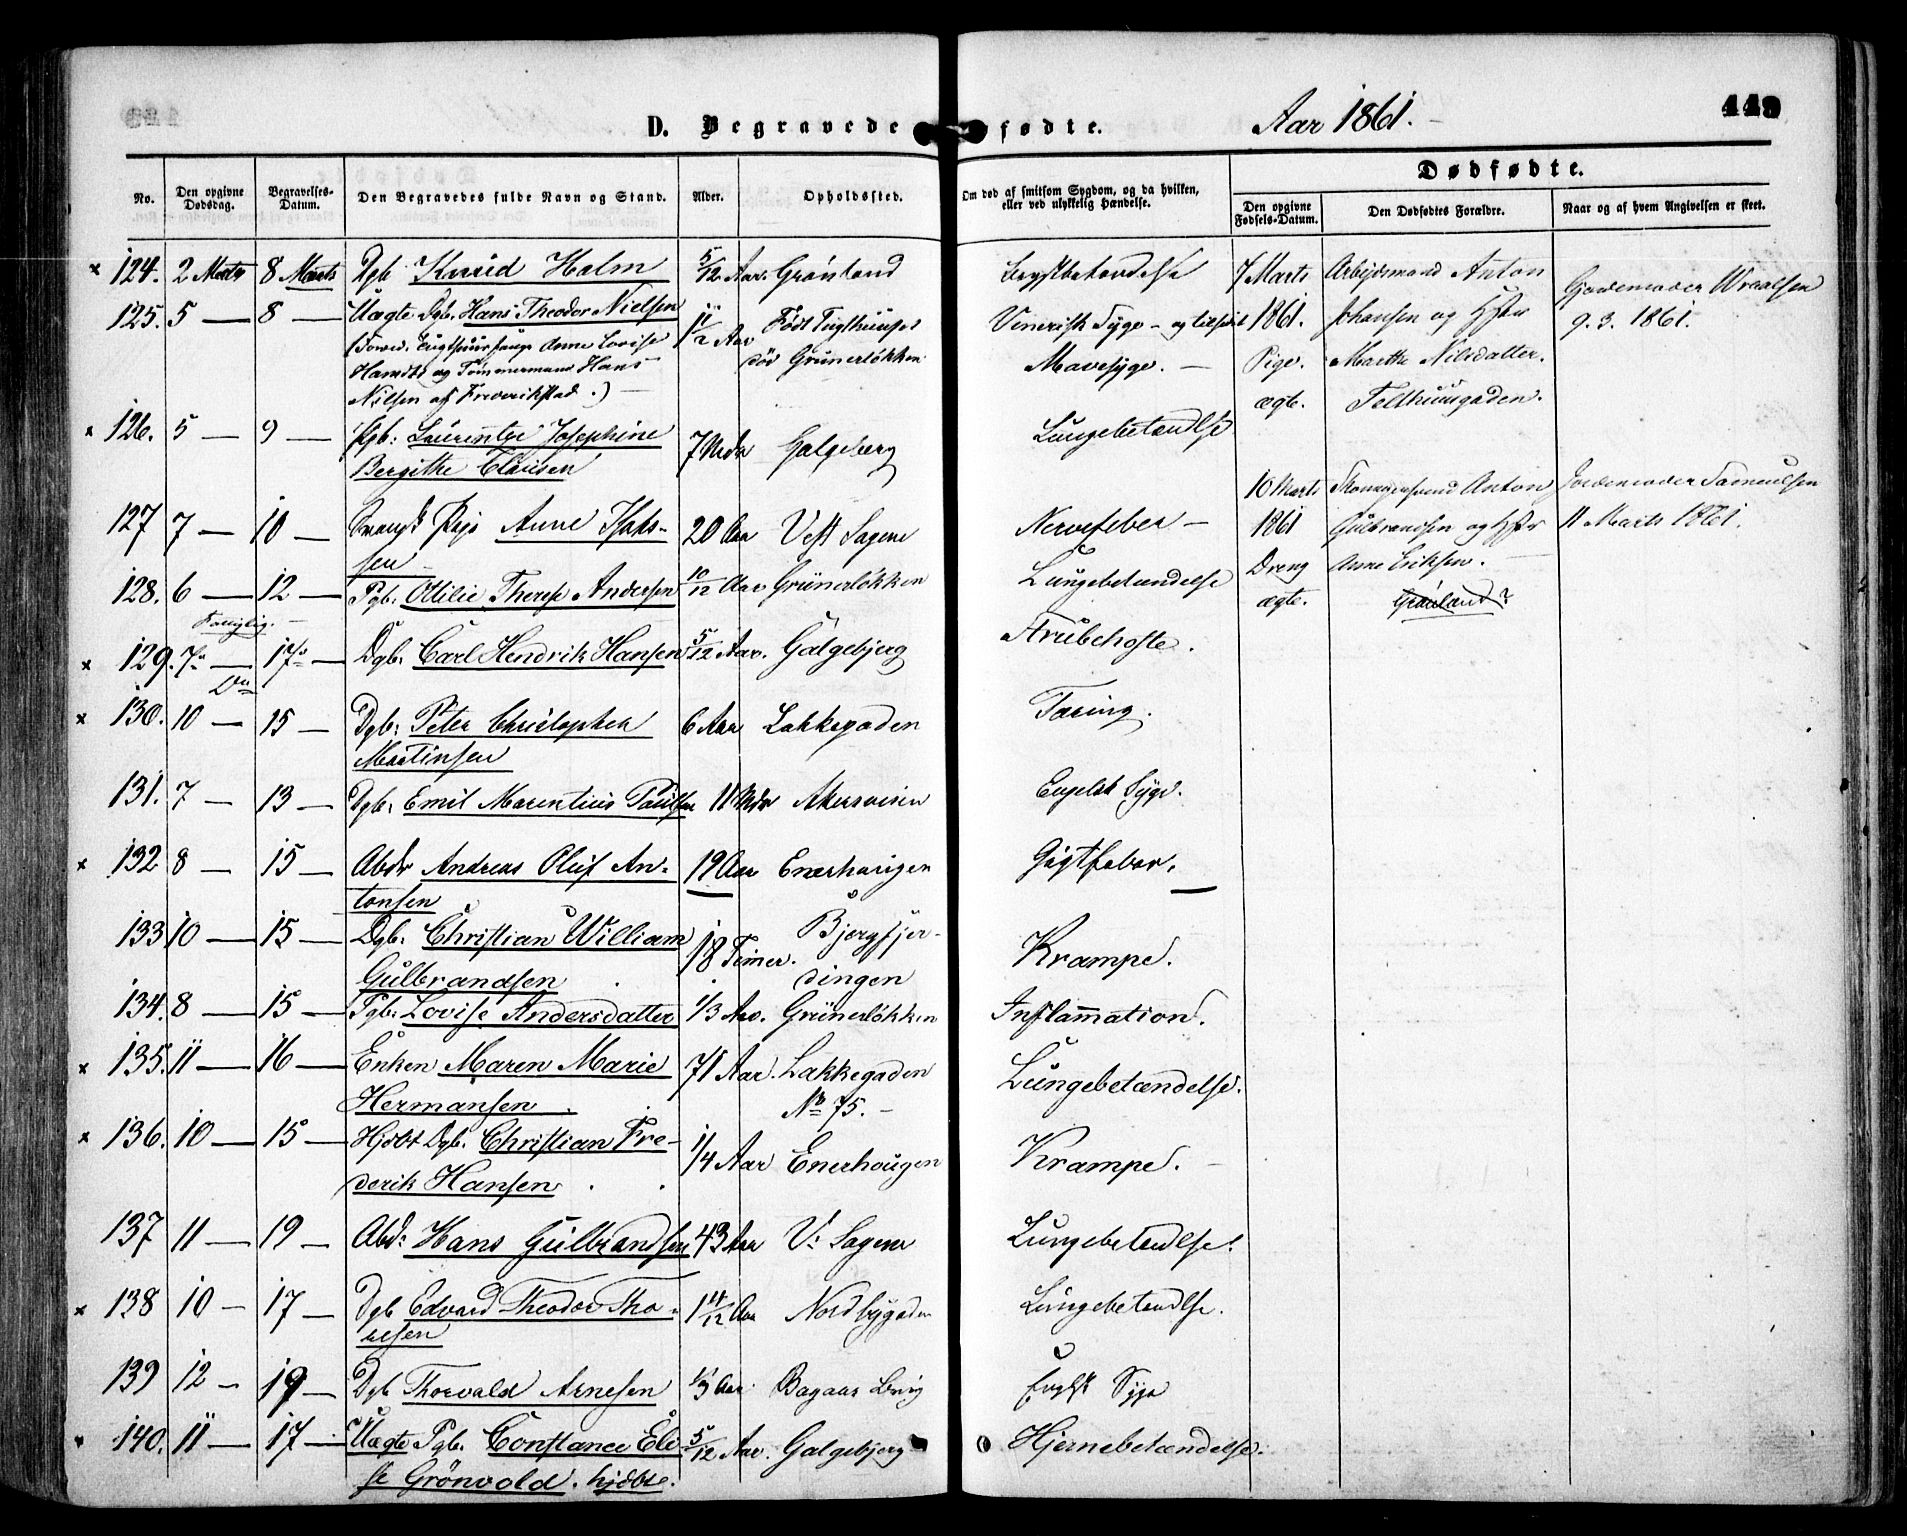 D. Begravede
fødte.
Aar 1861.
449
No.
Den opgivne Dødsdag.
Begravelses-Datum.
Den Begravedes fulde Navn og Stand.
Alder.
Opholdssted.
Om død af smitsom Sygdom, og da hvilken, eller ved ulykkelig Hændelse.
Dødfødte.
Den opgivne Fødsels-Datum.
Den Dødfødtes Forældre.
Naar og af hvem Angivelsen er skeet.
× 124. 2 Marts 8 Marts Dgb Knud Holm 5/12 Aar. Grønland Brystbetændelse
125. 5 — 8 — Uægte Dgb. Hans Theodor Nielsen 1 1/2 Aar Født Tugthuuset Venerisk Syge – og tilstødt
Anne Lovise død Grünerløkken Mavesyge. —
og Tømmermand Hans
Nilsen af Frederikstad.)
× 126. 5 — 9 — Pgb: Laurentze Josephine 7 Mdr Galgeberg Lungebetændlse
Bergithe Clausen
127 7 — 10 — Pige Anne Isak- 20 Aar Vest Sagene Nervefeber —
sen
128. 6 — 12 — Pgb. Otilie Therese Andersen 10/12 Aar Grünerløkken Lungebetændelse
× 129. 7 — 17 — Dgb. Carl Hendrik Hansen 5/12 Aar. Galgebjerg Strubehoste.
× 130. 10 — 15 — Dgb: Peter Christopher 6 Aar Lakkegaden Tæring.
Martinsen
131. 7 — 13 — Dgb. Emil Marentius Paulsen 11 Mdr Akersveien Engelsk Syge.
× 132 8 — 15 — Abdr Andreas Oluf An- 19 Aar Enerhaugen Gigtfeber.
tonsen
133 10 — 15 — Dgb: Christian William 18 Timer. Bjergfjer-
Gulbrandsen dingen Krampe.
134. 8 — 15 — Pgb: Lovise Andersdatter 1/3 Aar. Grünerløkken Inflammation.
× 135. 11 — 16 — Enken Maren Marie 71 Aar. Lakkegaden Lungebetændelse.
Hermansen. No 75. —
× 136. 10 — 15 — Hjdbt Dgb. Christian Fre- 1/4 Aar Enerhougen Krampe. —
derik Hansen
137 11 — 19 — Abd: Hans Gulbrandsen 43 Aar V: Sagene Lungebetændlse.
× 138 10 — 17 — Dgb Edvard Theodor Tho- 1 4/12 Aar Nordbygaden Lungebetændlse.
resen
139 12 — 19 — Dgb Thorvald Arnesen 1/3 Aar. Engelsk Syge
140. 11 — 17 — Uægte Pgb. Constance Eli- 5/12 Aar. Galgebjerg Hjernebetændelse.
se Grönvold. hjdbt.
7 Marts Arbeidsmand Anton Gjordemoder
1861. Johansen og Hustr 9. 3. 1861.
Pige. Marthe Nilsdatter.
ægte. Telthuusgaden.
10 Marts Anton Jordemoder Samuelsen
1861 Gulbrandsen og Hstr 11 Marts 1861.
Dreng Anne Eriksen.
ægte. Grønland?